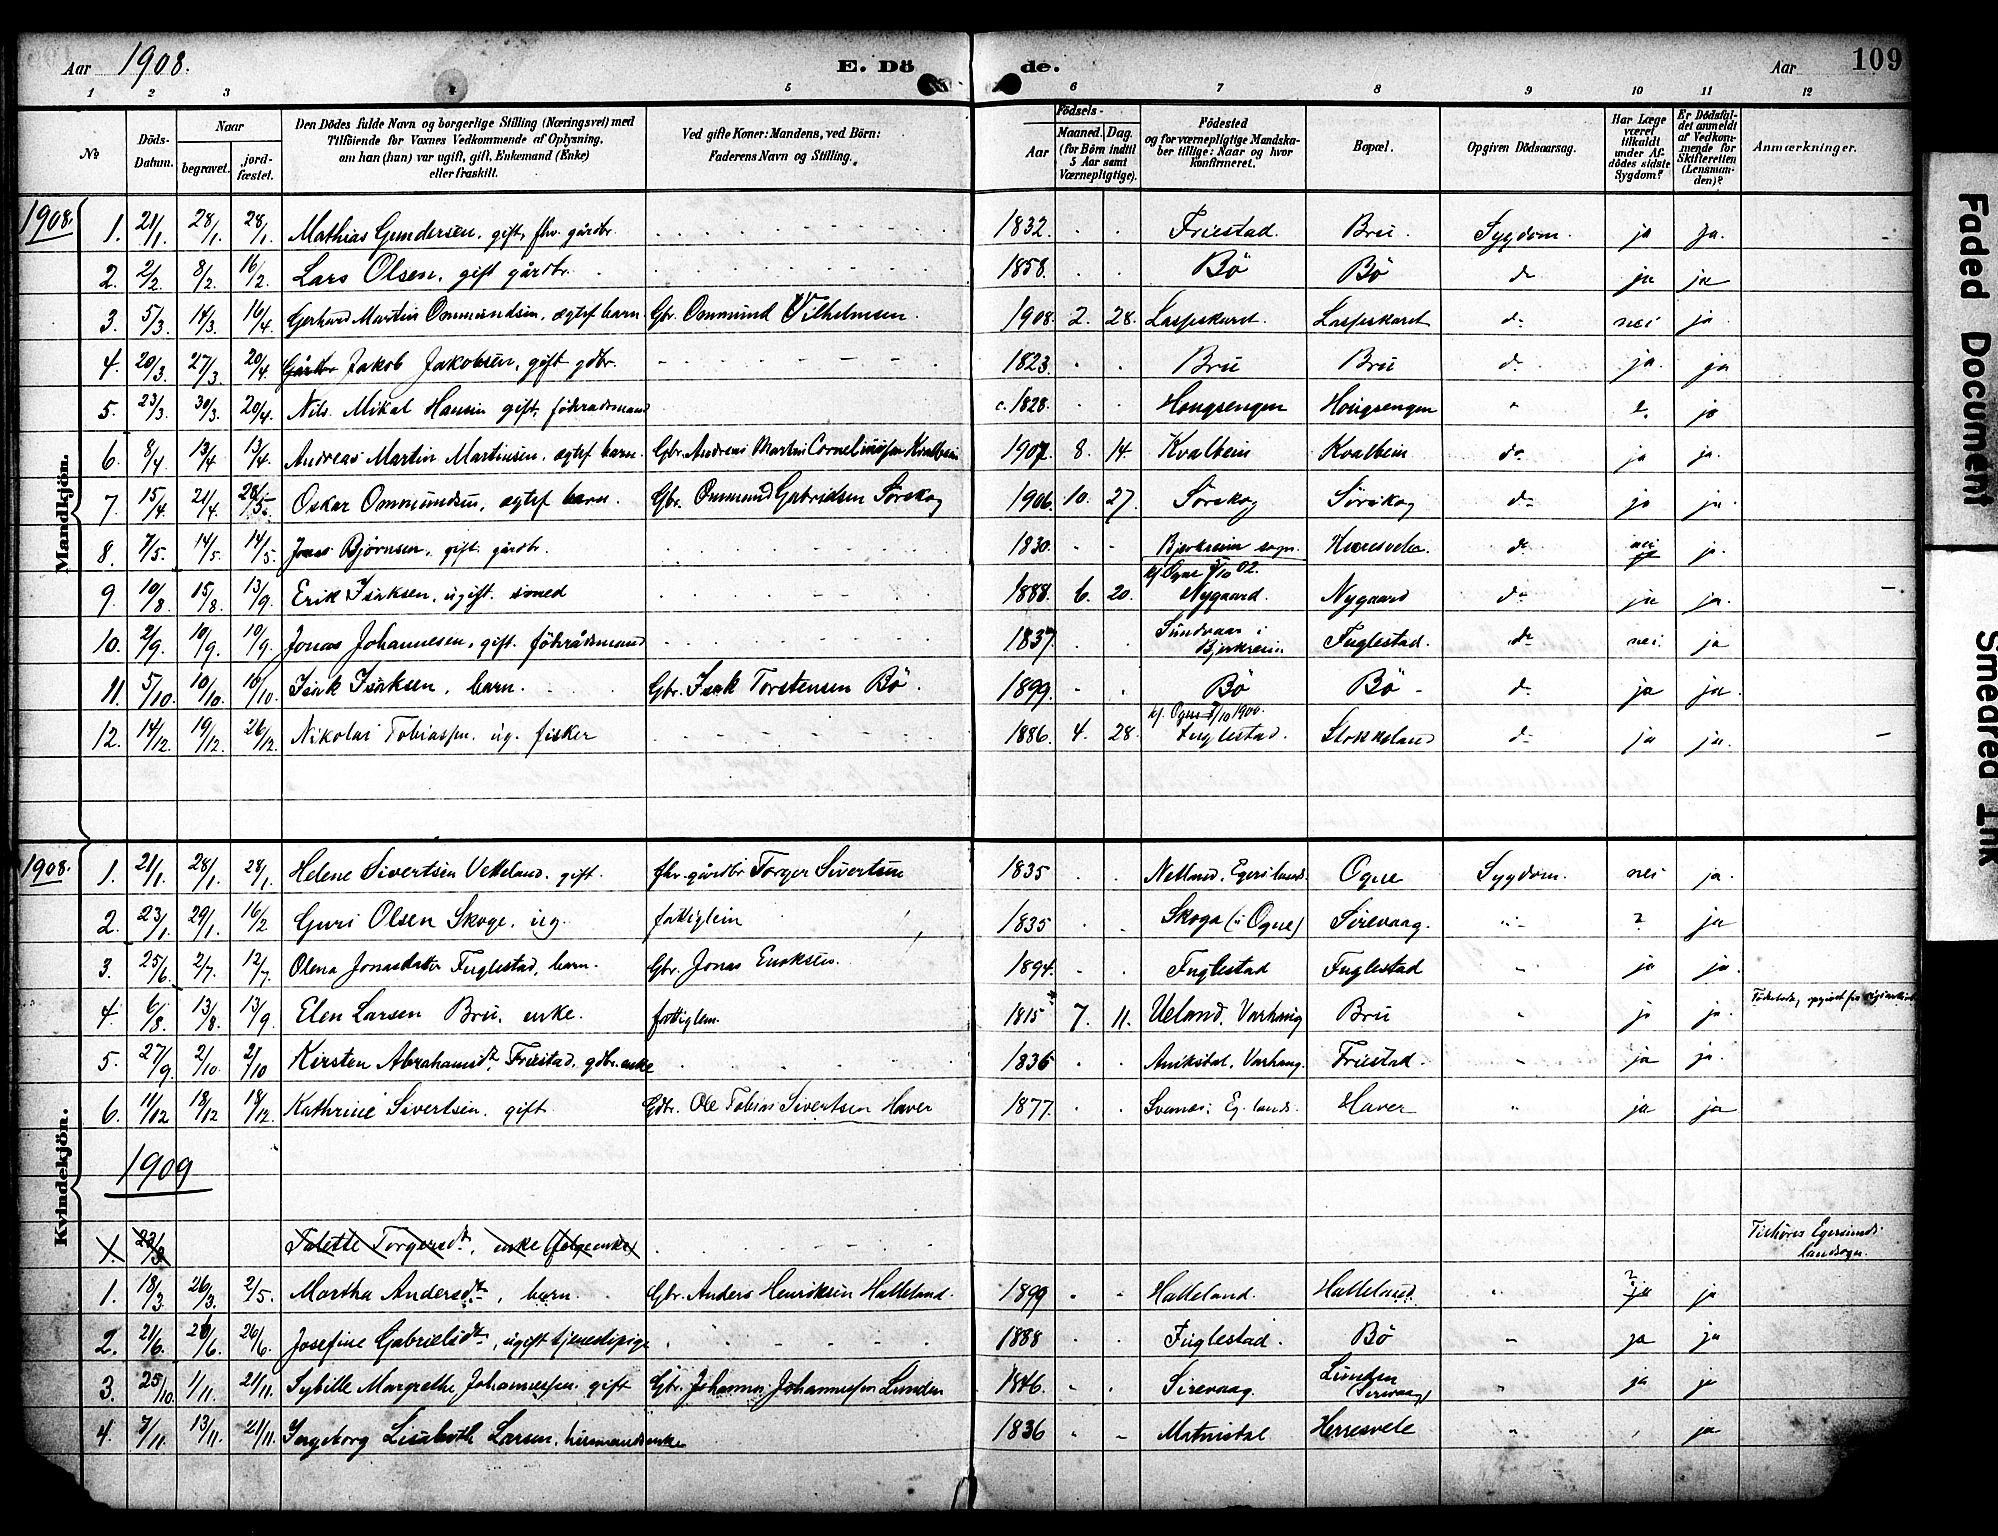 Aar 1908. E. Dö de. Aar 109
1 2 3 4 5 6 7 8 9 10 11 12
№
Döds-Datum.
Naar begravet. jord-fæstet.
Den Dödes fulde Navn og borgerlige Stilling (Næringsvei) med Tilföiende for Voxnes Vedkommende af Oplysning, om han (hun) var ugift, gift, Enkemand (Enke) eller fraskilt.
Ved gifte Koner: Mandens, ved Börn: Faderens Navn og Stilling.
Födsels- Aar Maaned. Dag. (for Börn indtil 5 Aar samt Værnepligtige).
Födested og for værnepligtige Mandskaber tillige: Naar og hvor konfirmeret.
Bopæl.
Opgiven Dödsaarsag.
Har Læge været tilkaldt under Afdödes sidste Sygdom?
Er Dödsfaldet anmeldt af Vedkommende for Skifteretten (Lensmanden)?
Anmærkninger.
Mandkjön.
1908. 1. 21/1. 28/1. 28/1. Mathias Gundersen, gift, fhv. gårdbr. 1832. Friestad. Bru. Sygdom. ja ja.
2. 2/2. 8/2. 16/2. Lars Olsen, gift gårdbr. 1858. Bö Bö do ja ja
3. 5/3. 14/3. 16/4. Gerhard Martin Ommundsen, ægtef barn Gbr. Ommund Vilhelmsen. 1908. 2. 28. Laspeskaret. Laspeskaret do nei ja
4. 20/3. 27/3. 20/4. Jakob Jakobsen, gift gdbr. 1823. Bru Bru do ja. ja
5. 23/3. 30/3. 20/4. Nils Mikal Hansen gift, föderådsmand c. 1828. Hougsengen Hougsengen " ja
6. 8/4. 13/4. 13/4. Andreas Martin Martinsen, ægtef barn. Gbr. Andreas Martin Corneliussen Kvalbein 1907. 8. 14. Kvalbein Kvalbein do ja ja.
7. 15/4. 21/4. Oskar Ommundsen, ægtef barn. Gbr. Ommund Gabrielsen Sörskog 1906. 10. 27. Sörskog Sörskog do ja ja.
8. 7/5. 14/5. 14/5. Jonas Bjørnsen, gift gårdbr. 1830. Bjerkreim sogn. do nei ja.
9. 10/8. 15/8. 13/9. Erik Isaksen, ugift. smed 1888. 6. 20. kf Ogne 5/10 02. Nygaard. Nygaard do ja ja.
10. 2/9. 10/9. 10/9. Jonas Johannesen, gift. föderådsmand 1837. i Bjerkreim Fuglestad. do nei. ja
11. 5/10. 10/10. 10/10. Isak Isaksen, barn. Gbr. Isak Torstensen Bö. 1899. Bö Bö do ja ja.
12. 14/12. 19/12. 26/12. Nikolai Tobiassen, ug. fisker 1886. 4. 28. kf. Ogne 7/10 1900. Fuglestad. Stokkeland do ja ja.
Kvindekjön.
1908. 1. 21/1. 28/1. 28/1. Helene Sivertsen Vetteland. gift. fhv. gårdbr Torger Sivertsen 1835. Netland, Egers lands. Ogne Sygdom. nei ja.
2. 23/1. 29/1. 16/2 Guri Olsen Skoge, ug. fattiglem 1835 Skoga (i Ogne) Sirevaag. " ? ja
3. 25/6. 2/7. 12/7. Olena Jonasdatter Fuglestad, barn. Gbr. Jonas Enoksen. 1894. Fuglestad Fuglestad " ja ja.
4. 6/8. 13/8. 13/9. Elen Larsen Bru, enke. fattiglem. 1815 7. 11. Ueland, Varhaug Bru " ja ja.
5. 27/9. 2/10. 2/10 Kirsten Abrahamsdt. Friestad, gdbr. enke 1836 Aniksdal, Varhaug. Friestad. " ja ja.
6. 11/12 18/12 18/12. Kathrine Sivertsen. gift Gdbr. Ole Tobias Sivertsen Haver 1877. Svanes i Eg. lands. Haver " ja ja
1909
1. 23/3 Talette Torgersdt., enke (følgeenke) Tilhøres Egersunds landsogn.
1. 18/3. 26/3. 2/5. Martha Andersdt, barn. Gbr. Anders Henriksen Halleland. 1899 Halleland. Halleland " ? ja ja
2. 21/6. 26/6. 26/6. Josefine Gabrielsdt, ugift tjenestepige 1888 Fuglestad. Bö " ja ja
3. 25/10. 1/11. 21/11. Sybille Margrethe Johannessen gift Gbr. Johannes Johannessen Lunden 1846. Sirevaag. Lunden (Sirevaag) " ja ja
4. 7/11. 13/11. 21/11. Ingeborg Lisabeth Larsen, 1836 Matnisdal Herresvele " ja
Faded Document
Smeared Ink